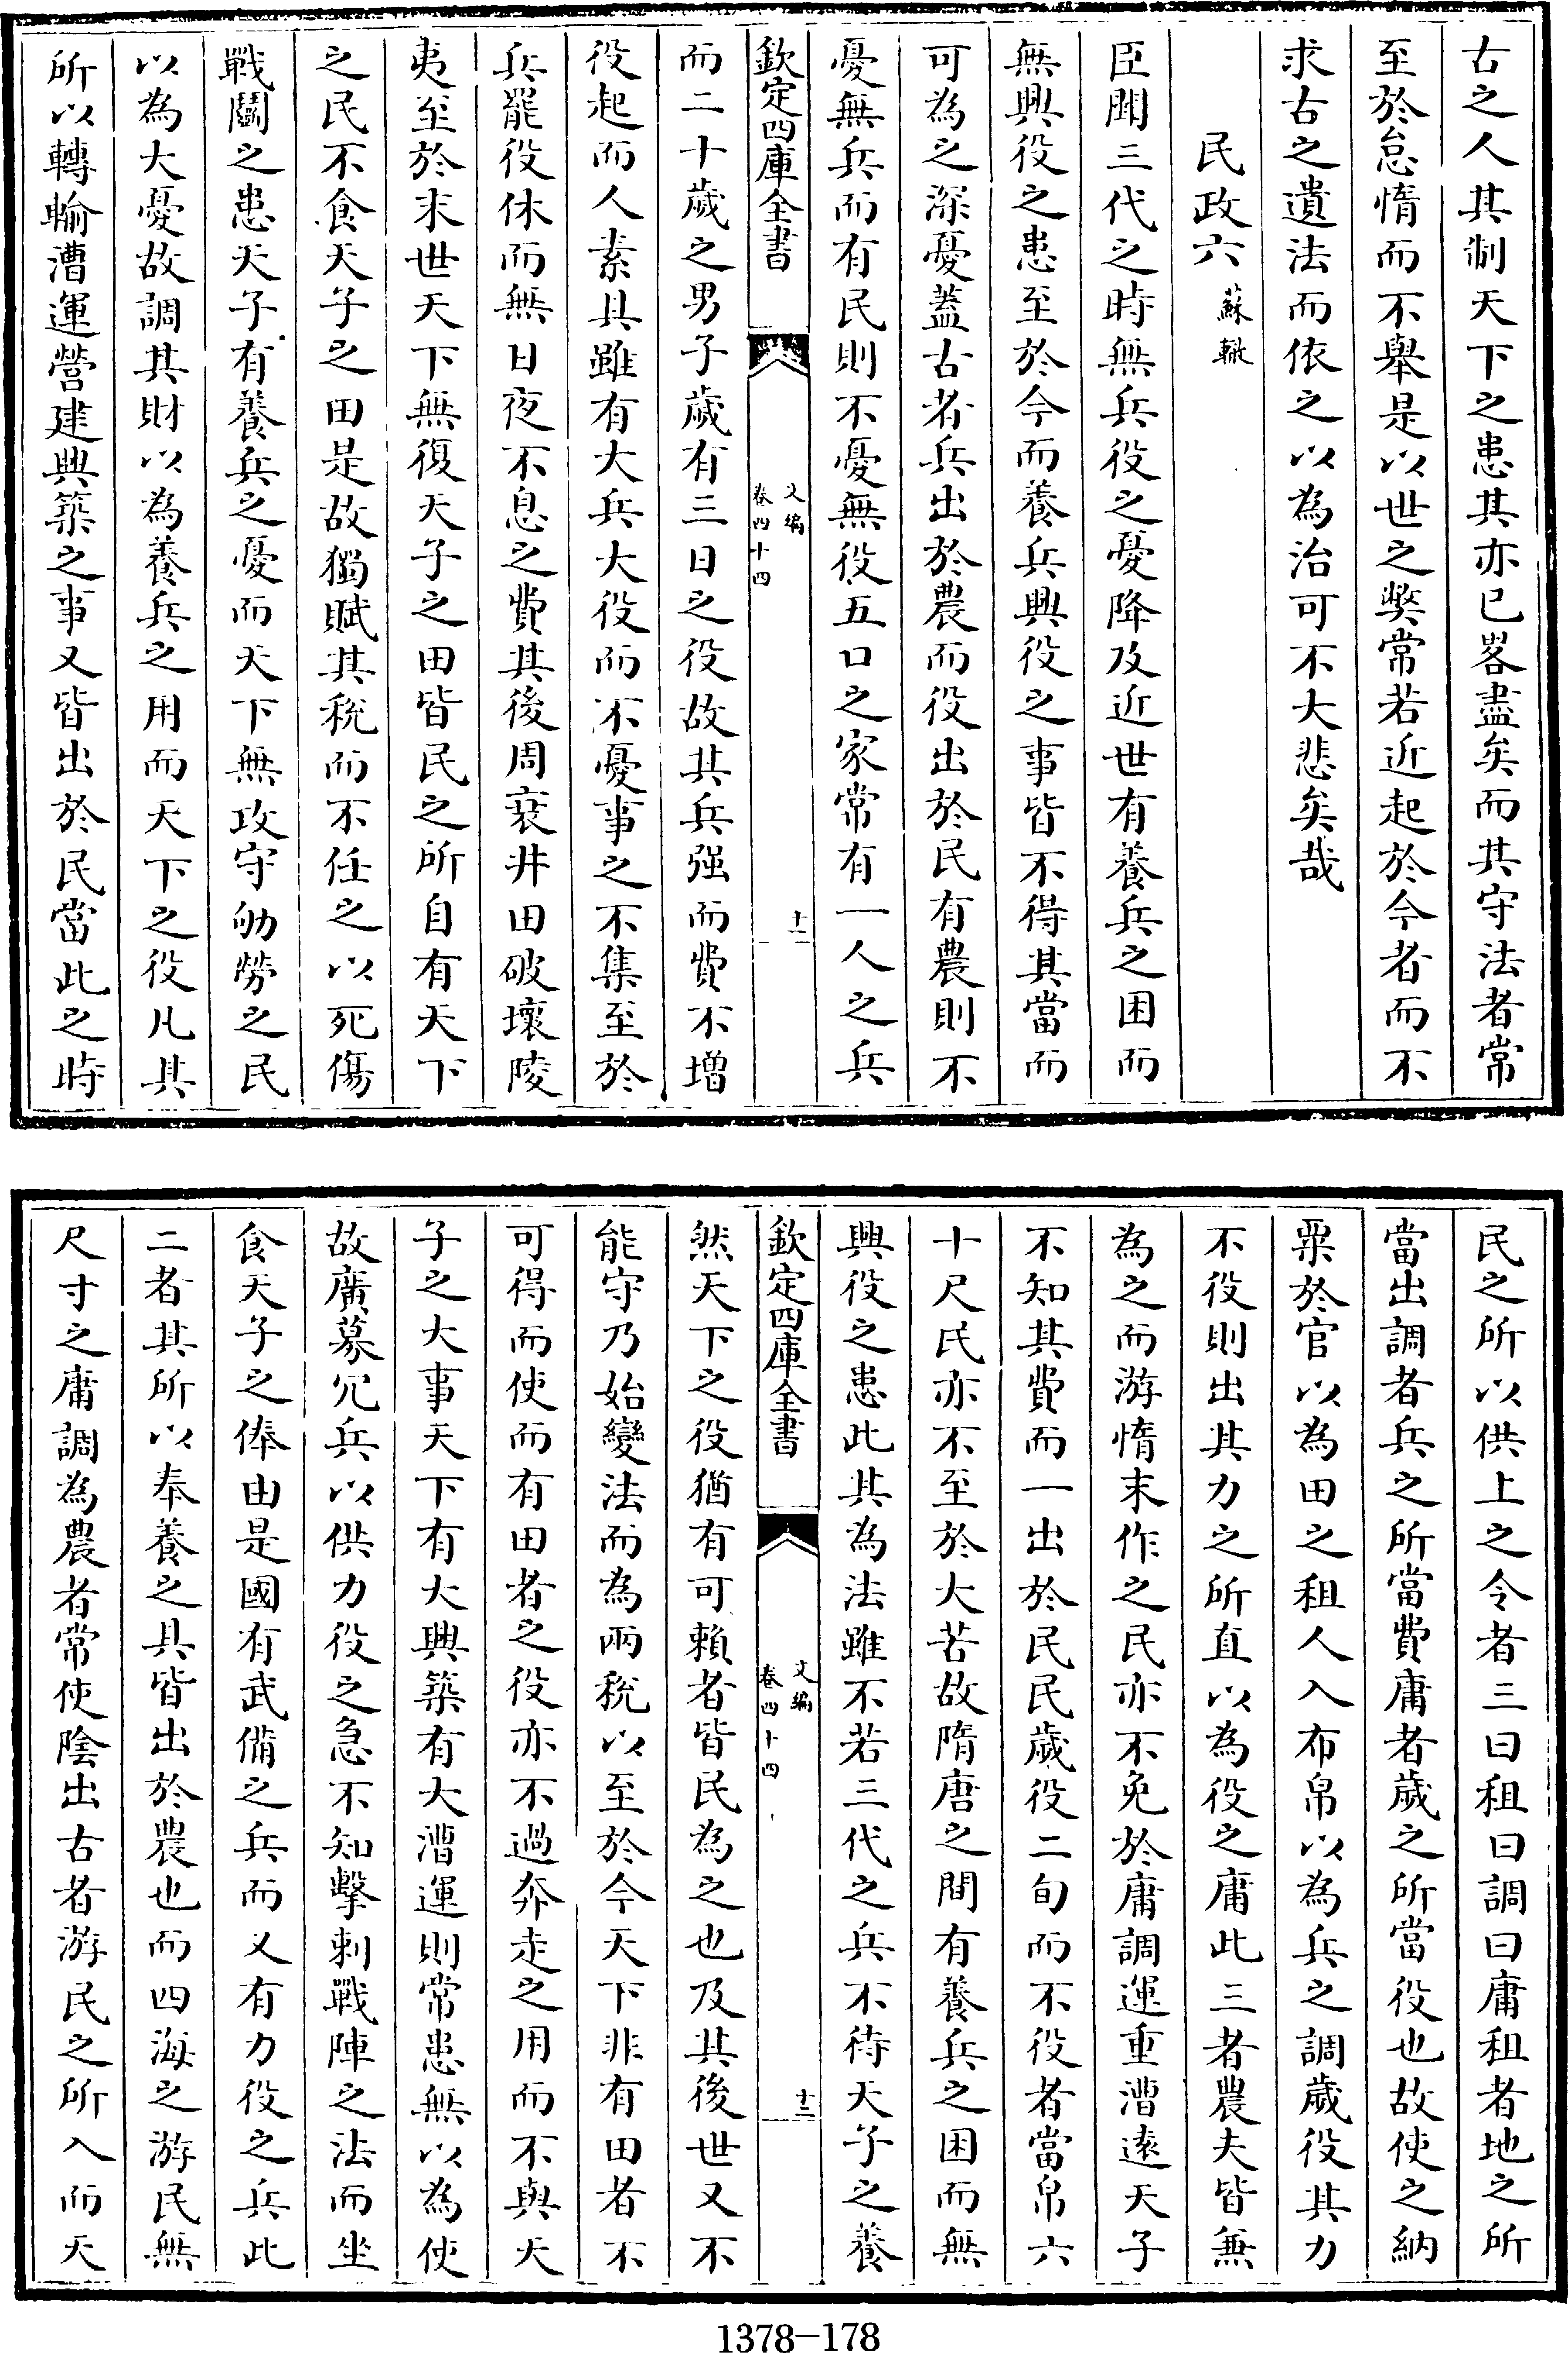 古之人其制天下之患其亦已畧盡矣而其守法者常
至於怠惰而不舉是以世之弊常若近起於今者而不
求古之遺法而依之以為治可不大悲矣哉
民政六 蘇轍
臣聞三代之時無兵役之憂降及近世有養兵之困而
無興役之患至於今而養兵興役之事皆不得其當而
可為之深憂蓋古者兵出於農而役出於民有農則不
憂無兵而有民則不憂無役五口之家常有一人之兵
欽定四庫全書 文編 卷四十四 十一
而二十歲之男子歲有三日之役故其兵强而費不增
役起而人素具雖有大兵大役而不憂事之不集至於
兵罷役休而無日夜不息之費其後周衰井田破壞陵
夷至於末世天下無復天子之田皆民之所自有天下
之民不食天子之田是故獨賦其稅而不任之以死傷
戰鬬之患天子有養兵之憂而天下無攻守劬勞之民
以為大憂故調其財以為養兵之用而天下之役凡其
所以轉輸漕運營建興築之事又皆出於民當此之時
民之所以供上之令者三曰租曰調曰庸租者地之所
當出調者兵之所當費庸者歲之所當役也故使之納
粟於官以為田之租人入布帛以為兵之調歲役其力
不役則出其力之所直以為役之庸此三者農夫皆兼
為之而游惰末作之民亦不免於庸調運重漕遠天子
不知其費而一出於民民歲役二旬而不役者當帛六
十尺民亦不至於大苦故隋唐之間有養兵之困而無
興役之患此其為法雖不若三代之兵不待天子之養
欽定四庫全書 文編 卷四十四 十二
然天下之役猶有可賴者皆民為之也及其後世又不
能守乃始變法而為兩稅以至於今天下非有田者不
可得而使而有田者之役亦不過奔走之用而不與天
子之大事天下有大興築有大漕運則常患無以為使
故廣募冗兵以供力役之急不知擊刺戰陣之法而坐
食天子之俸由是國有武備之兵而又有力役之兵此
二者其所以奉養之具皆出於農也而四海之游民無
尺寸之庸調為農者常使陰出古者游民之所入而天
1378—178